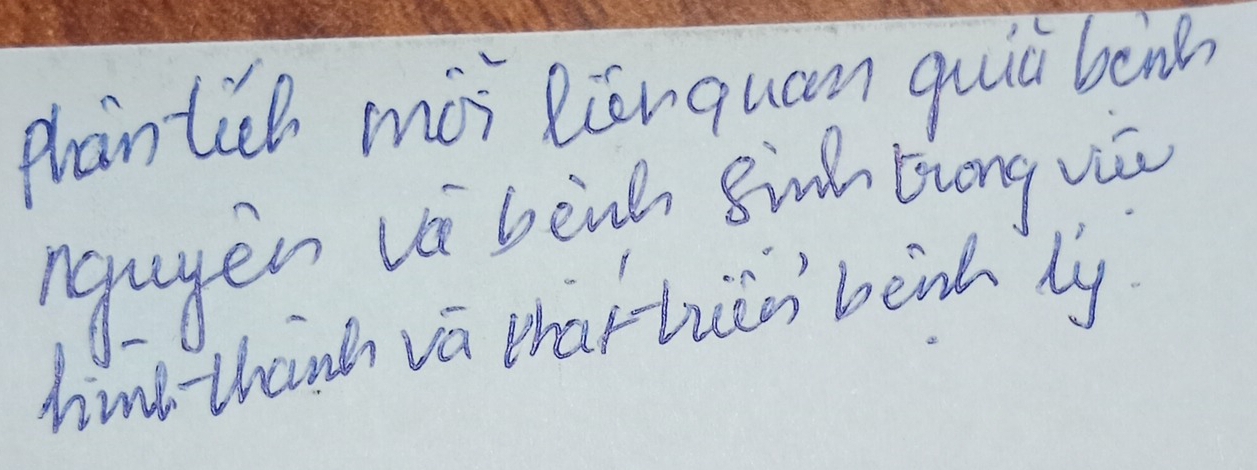 Phân tích mối liên quan giữa bệnh
nguyên và bệnh sinh trong việc
hình thành và phát triển bệnh lý.